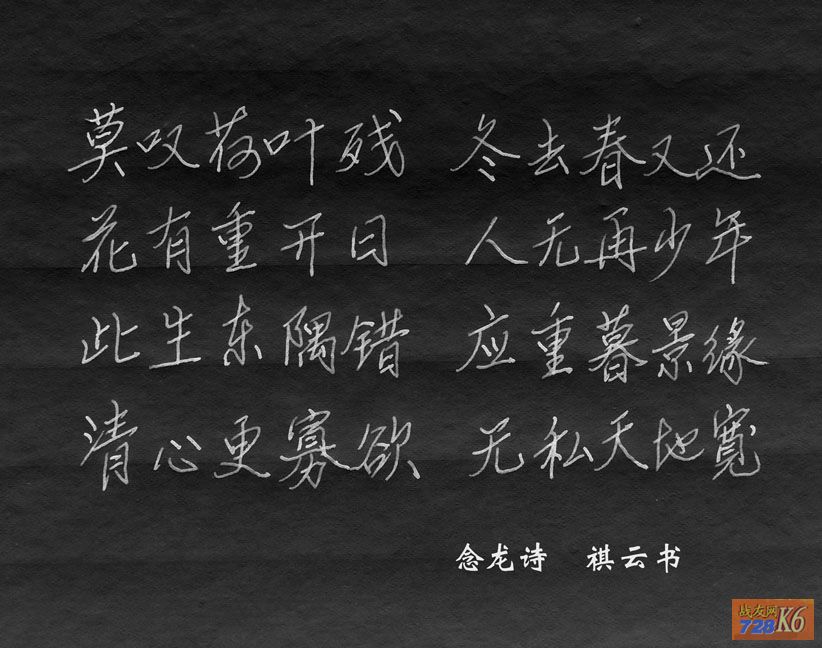 莫叹荷叶残 冬去春又还
花有重开日 人无再少年
此生东隅错 应重暮景缘
清心更寡欲 无私天地宽
念龙诗 祺云书
战友网
728K6